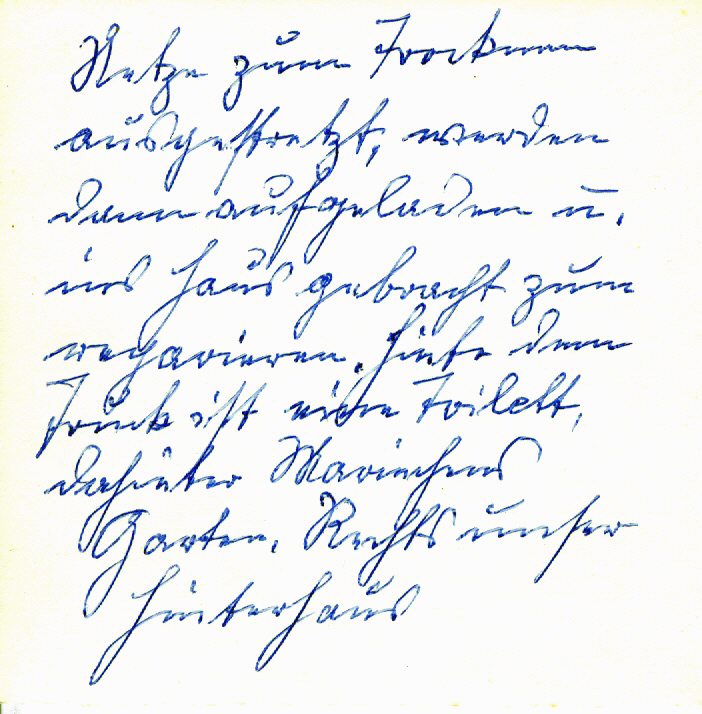 Netze zum Trocknen
ausgestreckt, werden
dann aufgeladen u.
ins Haus gebracht zum
reparieren. Hinter dem
ist eine Toilett,
dahinter Mariechens
Garten. Rechts unser
Hinterhaus